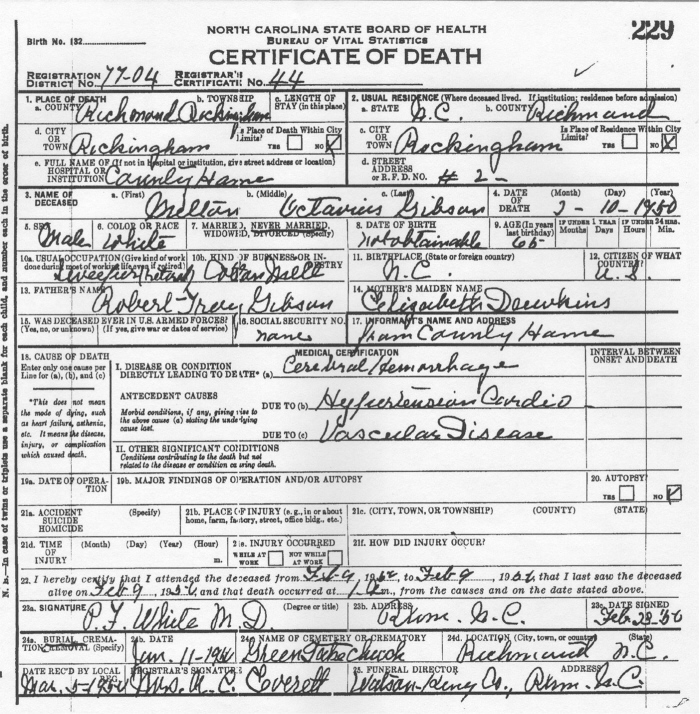 NORTH CAROLINA STATE BOARD OF HEALTH
BUREAU OF VITAL STATISTICS
CERTIFICATE OF DEATH
229
Birth No. 132
REGISTRATION DISTRICT No. 77-04 REGISTRAR'S CERTIFICATE No. 44
1. PLACE OF DEATH
a. COUNTY Richmond b. TOWNSHIP Rockingham c. LENGTH OF STAY (in this place)
2. USUAL RESIDENCE (Where deceased lived. If institution; residence before admission)
a. STATE N.C. b. COUNTY Richmond
d. CITY OR TOWN Rockingham Is Place of Death Within City Limits? YES NO
c. CITY OR TOWN Rockingham Is Place of Residence Within City Limits? YES NO
e. FULL NAME OF (If not in hospital or institution, give street address or location) HOSPITAL OR INSTITUTION County Home
d. STREET ADDRESS or R.F.D. NO. # 2 -
3. NAME OF DECEASED a. (First) Milton b. (Middle) Octavius c. (Last) Gibson
4. DATE OF DEATH (Month) (Day) (Year) 2-10-1950
5. SEX Male 6. COLOR OR RACE White 7. MARRIED, NEVER MARRIED, WIDOWED, DIVORCED (Specify)
8. DATE OF BIRTH not obtainable 9. AGE (In years last birthday) 65 IF UNDER 1 YEAR Months Days IF UNDER 24 Hrs. Hours Min.
10a. USUAL OCCUPATION (Give kind of work done during most of working life, even if retired) 10b. KIND OF BUSINESS OR INDUSTRY Cotton Mill
11. BIRTHPLACE (State or foreign country) N.C. 12. CITIZEN OF WHAT COUNTRY? U.S.
13. FATHER'S NAME Robert Troy Gibson
14. MOTHER'S MAIDEN NAME Elizabeth Dawkins
15. WAS DECEASED EVER IN U.S. ARMED FORCES? (Yes, no, or unknown) (If yes, give war or dates of service)
16. SOCIAL SECURITY NO. none
17. INFORMANT'S NAME AND ADDRESS from County Home
18. CAUSE OF DEATH
Enter only one cause per line for (a), (b), and (c)
*This does not mean the mode of dying, such as heart failure, asthenia, etc. It means the disease, injury, or complication which caused death.
MEDICAL CERTIFICATION
INTERVAL BETWEEN ONSET AND DEATH
I. DISEASE OR CONDITION DIRECTLY LEADING TO DEATH* (a) Cerebral Hemorrhage
ANTECEDENT CAUSES
Morbid conditions, if any, giving rise to the above cause (a) stating the underlying cause last.
DUE TO (b) Hypertension Cardio
DUE TO (c) Vascular Disease
II. OTHER SIGNIFICANT CONDITIONS
Conditions contributing to the death but not related to the disease or condition causing death.
19a. DATE OF OPERATION 19b. MAJOR FINDINGS OF OPERATION AND/OR AUTOPSY
20. AUTOPSY? YES NO
21a. ACCIDENT SUICIDE HOMICIDE (Specify)
21b. PLACE OF INJURY (e.g., in or about home, farm, factory, street, office bldg., etc.)
21c. (CITY, TOWN, OR TOWNSHIP) (COUNTY) (STATE)
21d. TIME OF INJURY (Month) (Day) (Year) (Hour) m.
21e. INJURY OCCURRED WHILE AT WORK NOT WHILE AT WORK
21f. HOW DID INJURY OCCUR?
22. I hereby certify that I attended the deceased from Feb 9, to Feb 9, that I last saw the deceased
alive on Feb 9, and that death occurred at m., from the causes and on the date stated above.
23a. SIGNATURE P. J. White M.D. (Degree or title) 23b. ADDRESS N.C. 23c. DATE SIGNED
24a. BURIAL, CREMATION, REMOVAL (Specify) 24b. DATE 24c. NAME OF CEMETERY OR CREMATORY 24d. LOCATION (City, town, or county) (State) Richmond N.C.
DATE REC'D BY LOCAL REG. REGISTRAR'S SIGNATURE Everett
25. FUNERAL DIRECTOR ADDRESS Watson-King Co., N.C.
N. B.—In case of twins or triplets use a separate blank for each child, and number each in the order of birth.